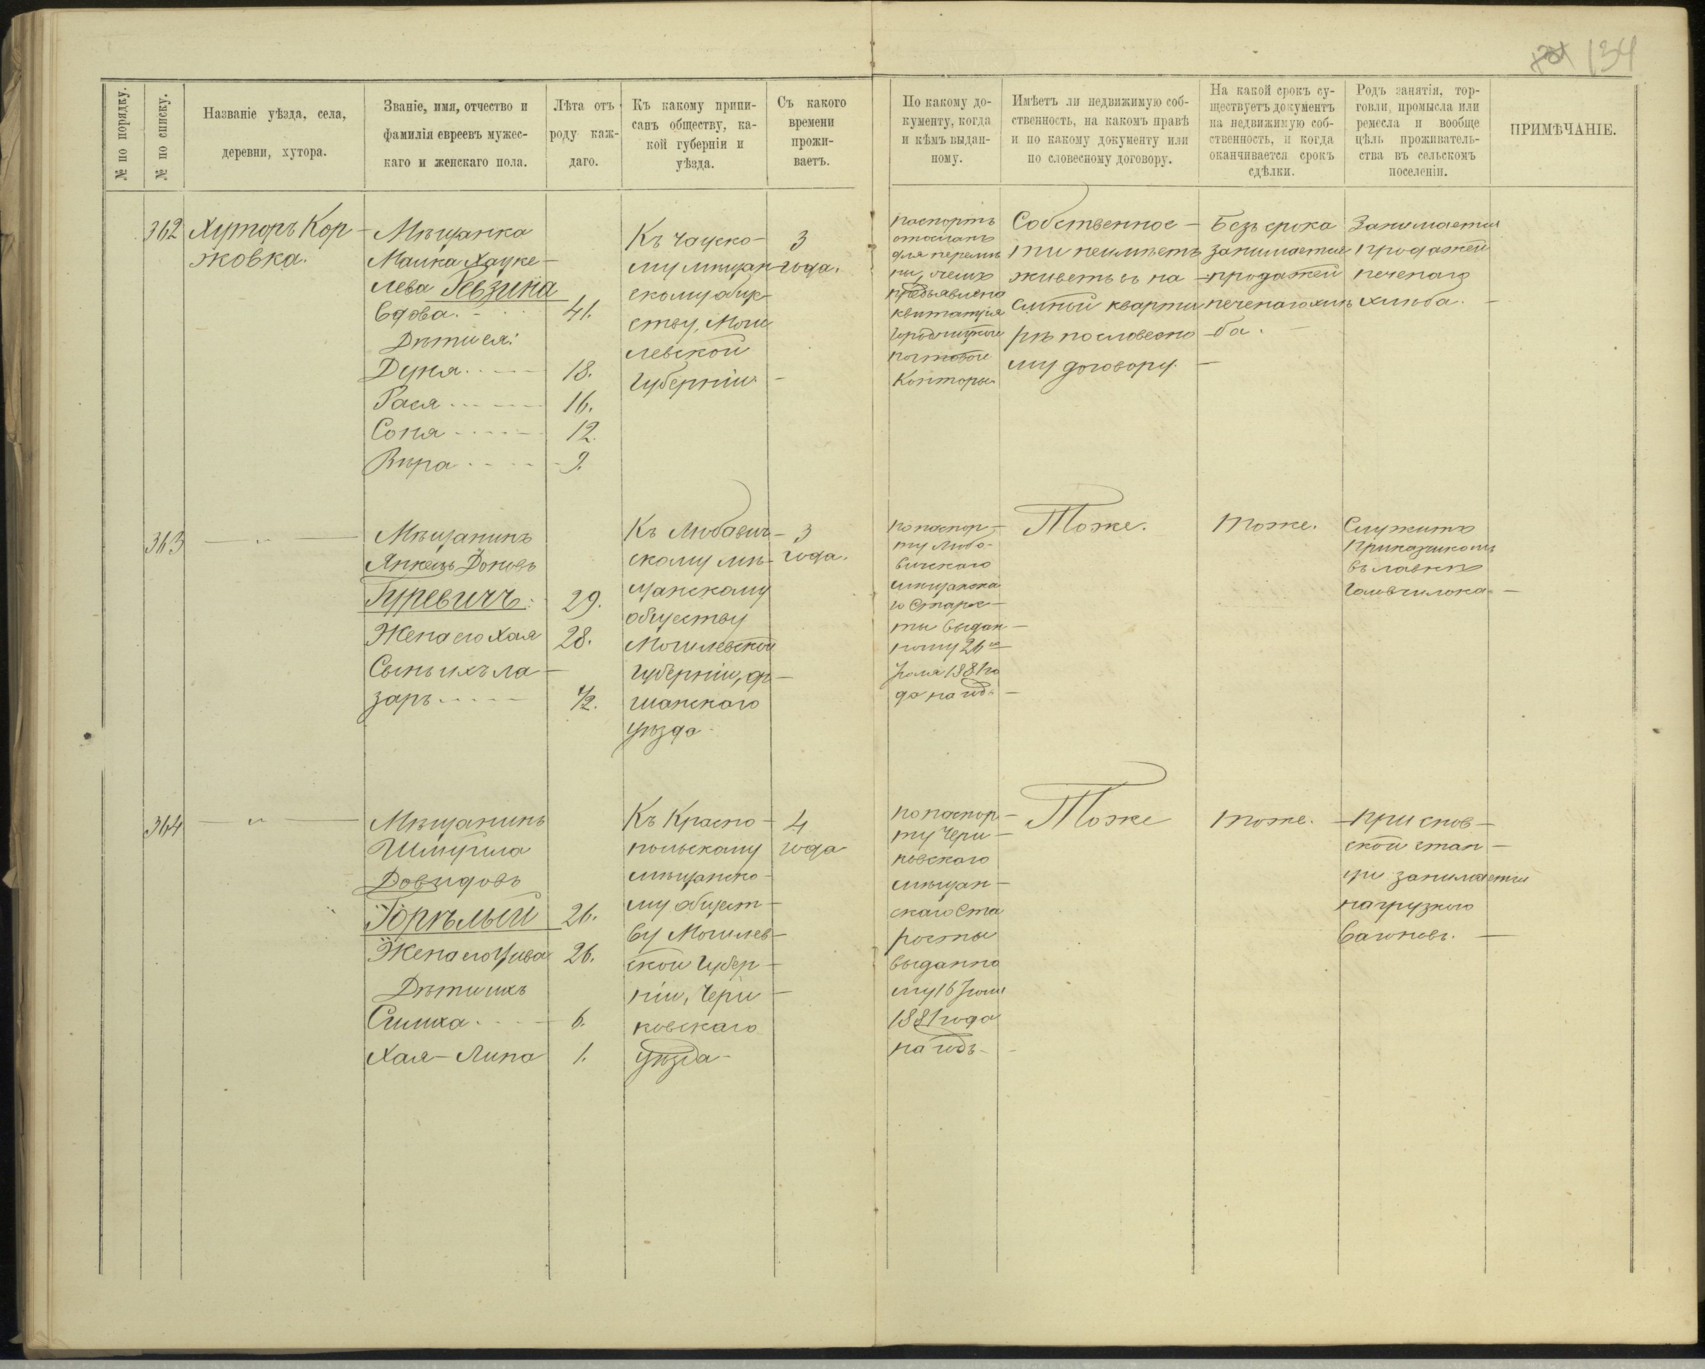 134
№ по порядку.
№ по списку.
Названіе уѣзда, села,
деревни, хутора.
Званіе, имя, отчество и
фамилія евреевъ мужес-
каго и женскаго пола.
Лѣта отъ
роду каж-
даго.
Къ какому припи-
санъ обществу, ка-
кой губерніи и
уѣзда.
Съ какого
времени
прожи-
ваетъ.
По какому до-
кументу, когда
и кѣмъ выдан-
ному.
Имѣетъ ли недвижимую соб-
ственность, на какомъ правѣ
и по какому документу или
по словесному договору.
На какой срокъ су-
ществуетъ документъ
на недвижимую соб-
ственность, и когда
оканчивается срокъ
сдѣлки.
Родъ занятія, тор-
говли, промысла или
ремесла и вообще
цѣль проживатель-
ства въ сельскомъ
поселеніи.
ПРИМѢЧАНІЕ.
362
Хуторъ Кор-
жовка.
Мѣщанка
Малка Хацке-
лева Гевзина
Вдова.
Дѣти ея:
Дуня
Рася
Соня
Вира
41.
18.
16.
12.
9.
Къ Чауско-
му мѣщан-
скому обще-
ству, Моги
левской
Губерніи
3
года.
паспортъ
отосланъ
для перемѣ
ны, о чемъ
предъявлена
квитанція
Городницкой
почтовой
Конторы
Собственнос-
ти неимѣетъ
живетъ въ на-
ёмной кварти
рѣ по словесно
му договору.
Безъ срока
занимается
продажей
печенаго хлѣ
ба.
Занимается
продажей
печенаго
хлѣба.
363
— „ —
Мѣщанинъ
Янкель Доновъ
Гуревичъ
Жена его Хая
Сынъ ихъ Ла-
заръ
29.
28.
1/2.
Къ Любавич-
скому мѣ-
щанскому
обществу
Могилевской
Губерніи, Ор-
шанскаго
уѣзда
3
года.
по паспор-
ту Любо-
вичскаго
мѣщанска
го Старос-
ты выдан-
ному 26 го
Іюля 1881 го
да на годъ
Тоже.
тоже.
Служитъ
Приказчикомъ
въ лавкѣ
364
— „ —
Мѣщанинъ
Шмуила
Довидовъ
Горѣлый
Жена его Цива
Дѣти ихъ
Симха
Хая-Липа
26.
26.
6.
1.
Къ Красно-
польскому
мѣщанско-
му общест-
ву Могилев-
ской Губер-
ніи, Чери-
ковскаго
уѣзда
4
года
по паспор-
ту Чери-
ковскаго
мѣщан-
скаго Ста
росты
выданно
му 16 Іюля
1881 года
на годъ
Тоже
тоже.
При снов-
ской стан-
ціи занимается
нагрузкою
вагоновъ.